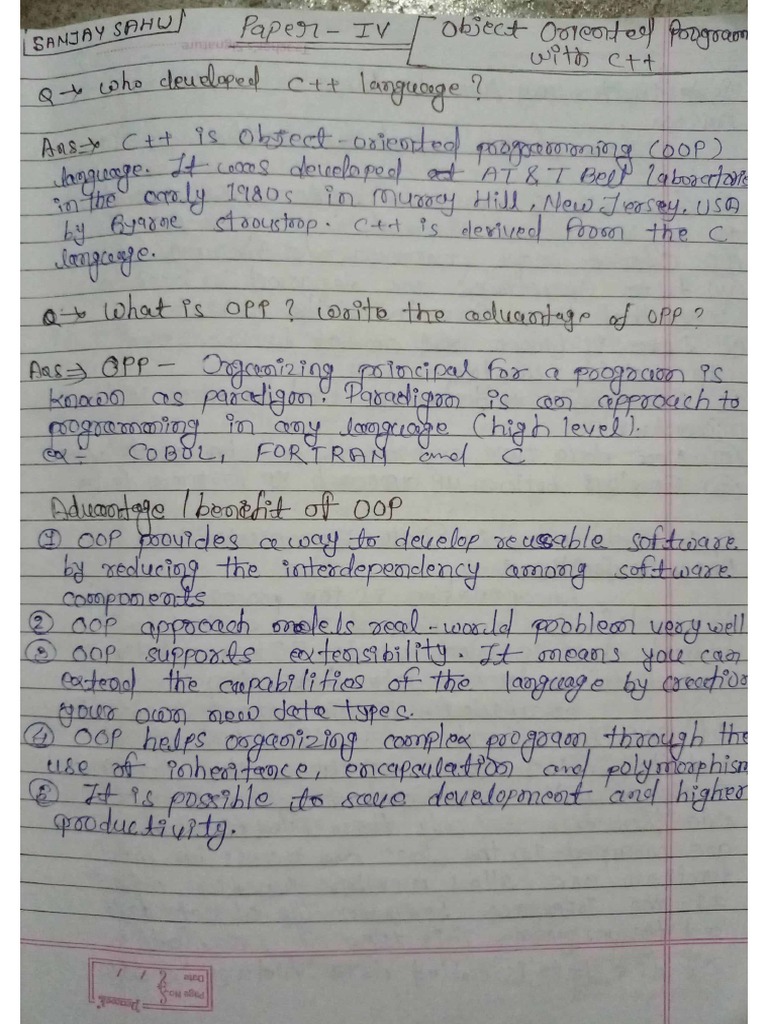 SANJAY SAHU
Paper - IV
Object Oriented Program
with C++
Q→ who developed C++ language?
Ans→ C++ is Object-oriented programming (OOP)
language. It was developed at AT&T Bell laboratories
in the early 1980s in Murray Hill, New Jersey, USA
by Bjarne stroustrop. C++ is derived from the C
language.
Q→ What is OPP? Write the advantage of OPP?
Ans⇒ OPP - Organizing principal for a program is
known as paradigm. Paradigm is an approach to
programming in any language (high level).
ex= COBOL, FORTRAN and C
Advantage / benefit of OOP
① OOP provides a way to develop reusable software
by reducing the interdependency among software
components
② OOP approach models real-world problem very well
③ OOP supports extensibility. It means you can
extend the capabilities of the language by creation
your own new data types.
④ OOP helps organizing complex program through the
use of inheritance, encapsulation and polymorphism
⑤ It is possible to save development and higher
productivity.
Page No.
Date